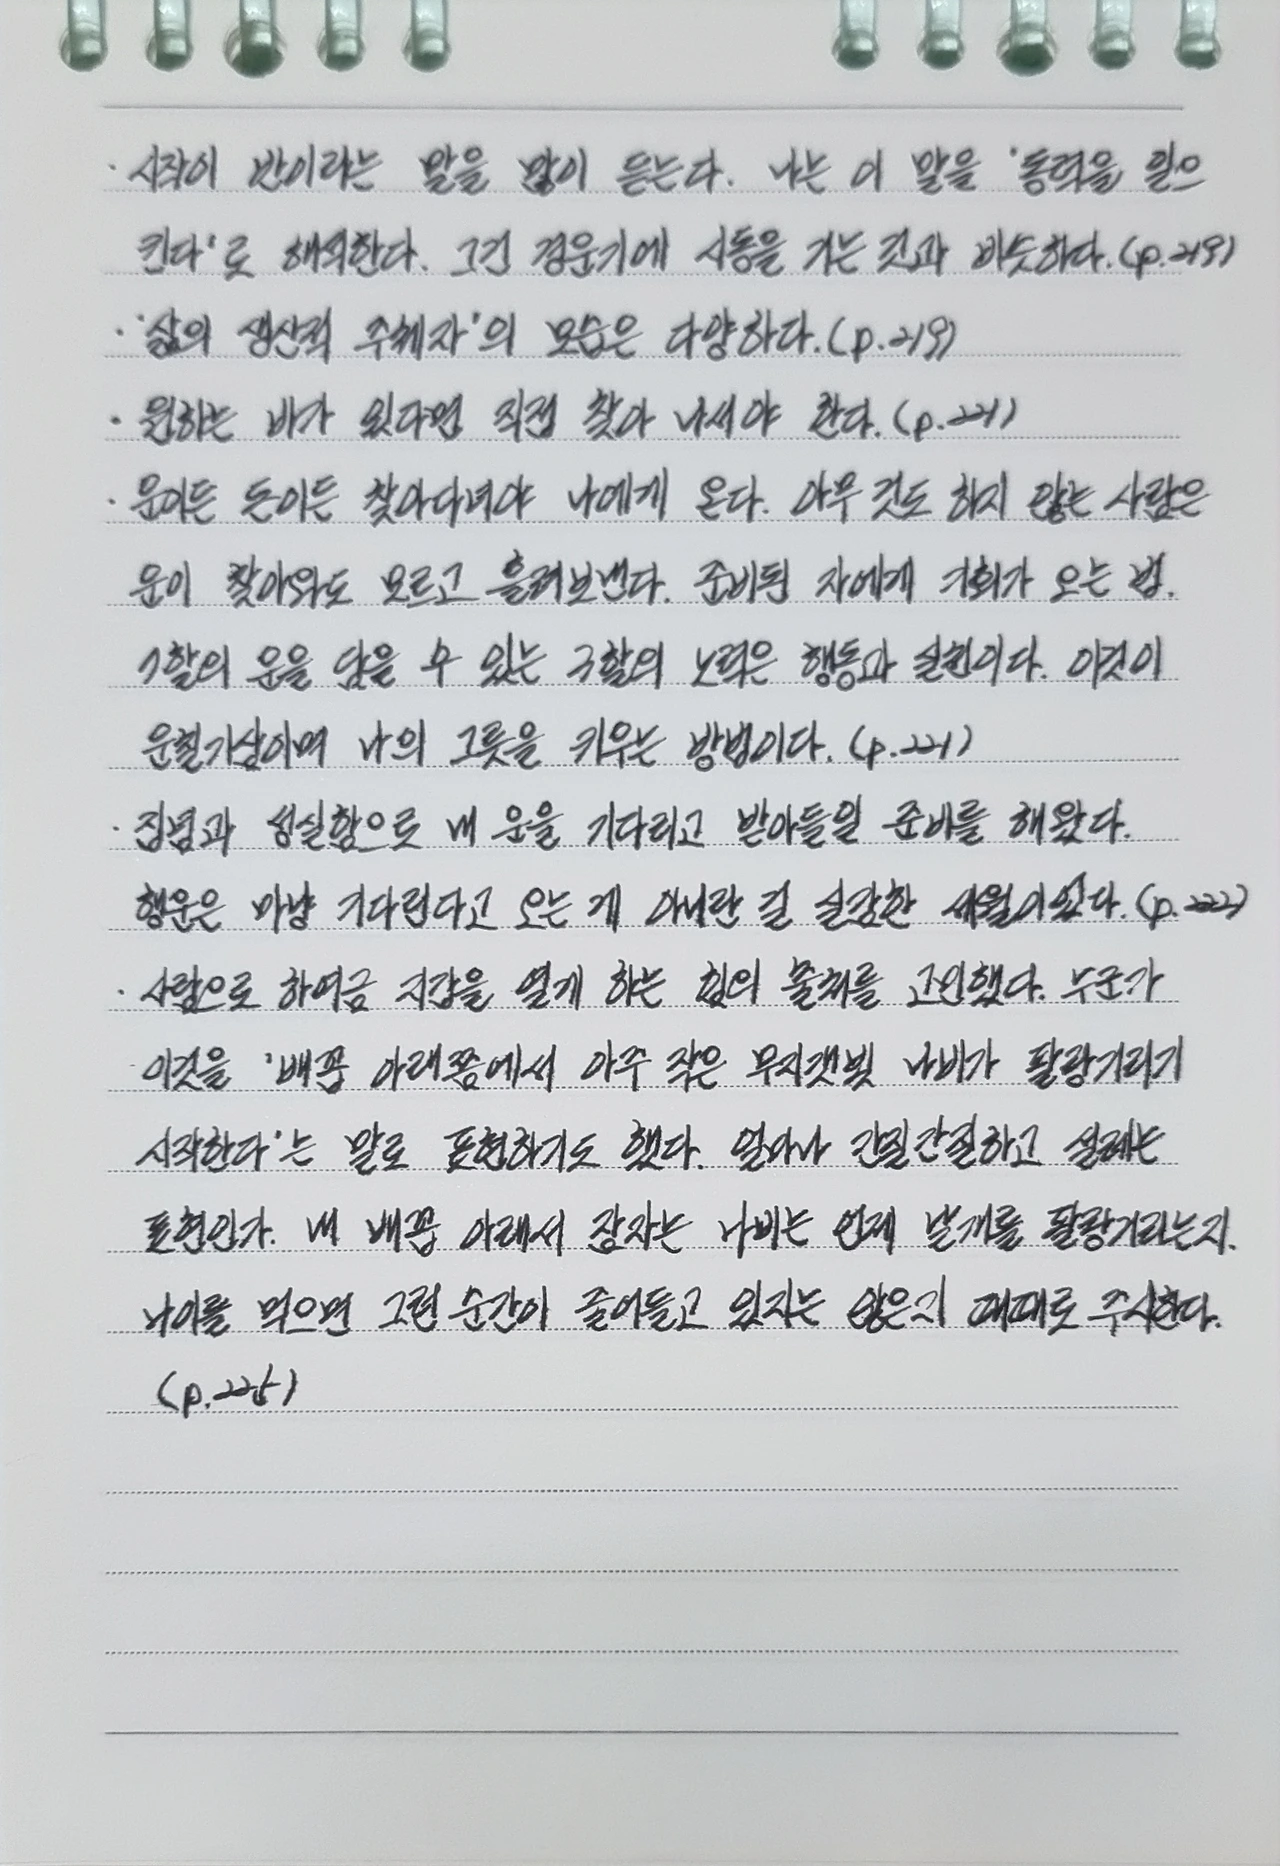 · 시작이 반이라는 말을 많이 듣는다. 나는 이 말을 '동력을 일으
킨다'로 해석한다. 그건 경운기에 시동을 거는 것과 비슷하다.(p.219)
· '삶의 생산적 주체자'의 모습은 다양하다.(p.219)
· 원하는 바가 있다면 직접 찾아 나서야 한다.(p.221)
· 운이든 돈이든 찾아다녀야 나에게 온다. 아무 것도 하지 않는 사람은
운이 찾아와도 모르고 흘려보낸다. 준비된 자에게 기회가 오는 법.
7할의 운을 담을 수 있는 3할의 노력은 행동과 실천이다. 이것이
운칠기삼이며 나의 그릇을 키우는 방법이다.(p.221)
· 집념과 성실함으로 내 운을 기다리고 받아들일 준비를 해왔다.
행운은 마냥 기다린다고 오는 게 아니란 걸 실감한 세월이었다.(p.222)
· 사람으로 하여금 지갑을 열게 하는 힘의 출처를 고민했다. 누군가
이것을 '배꼽 아래쯤에서 아주 작은 무지갯빛 나비가 팔랑거리기
시작한다'는 말로 표현하기도 했다. 얼마나 간질간질하고 설레는
표현인가. 내 배꼽 아래서 잠자는 나비는 언제 날개를 팔랑거리는지.
나이를 먹으면 그런 순간이 줄어들고 있지는 않은지 때때로 주시한다.
(p.225)